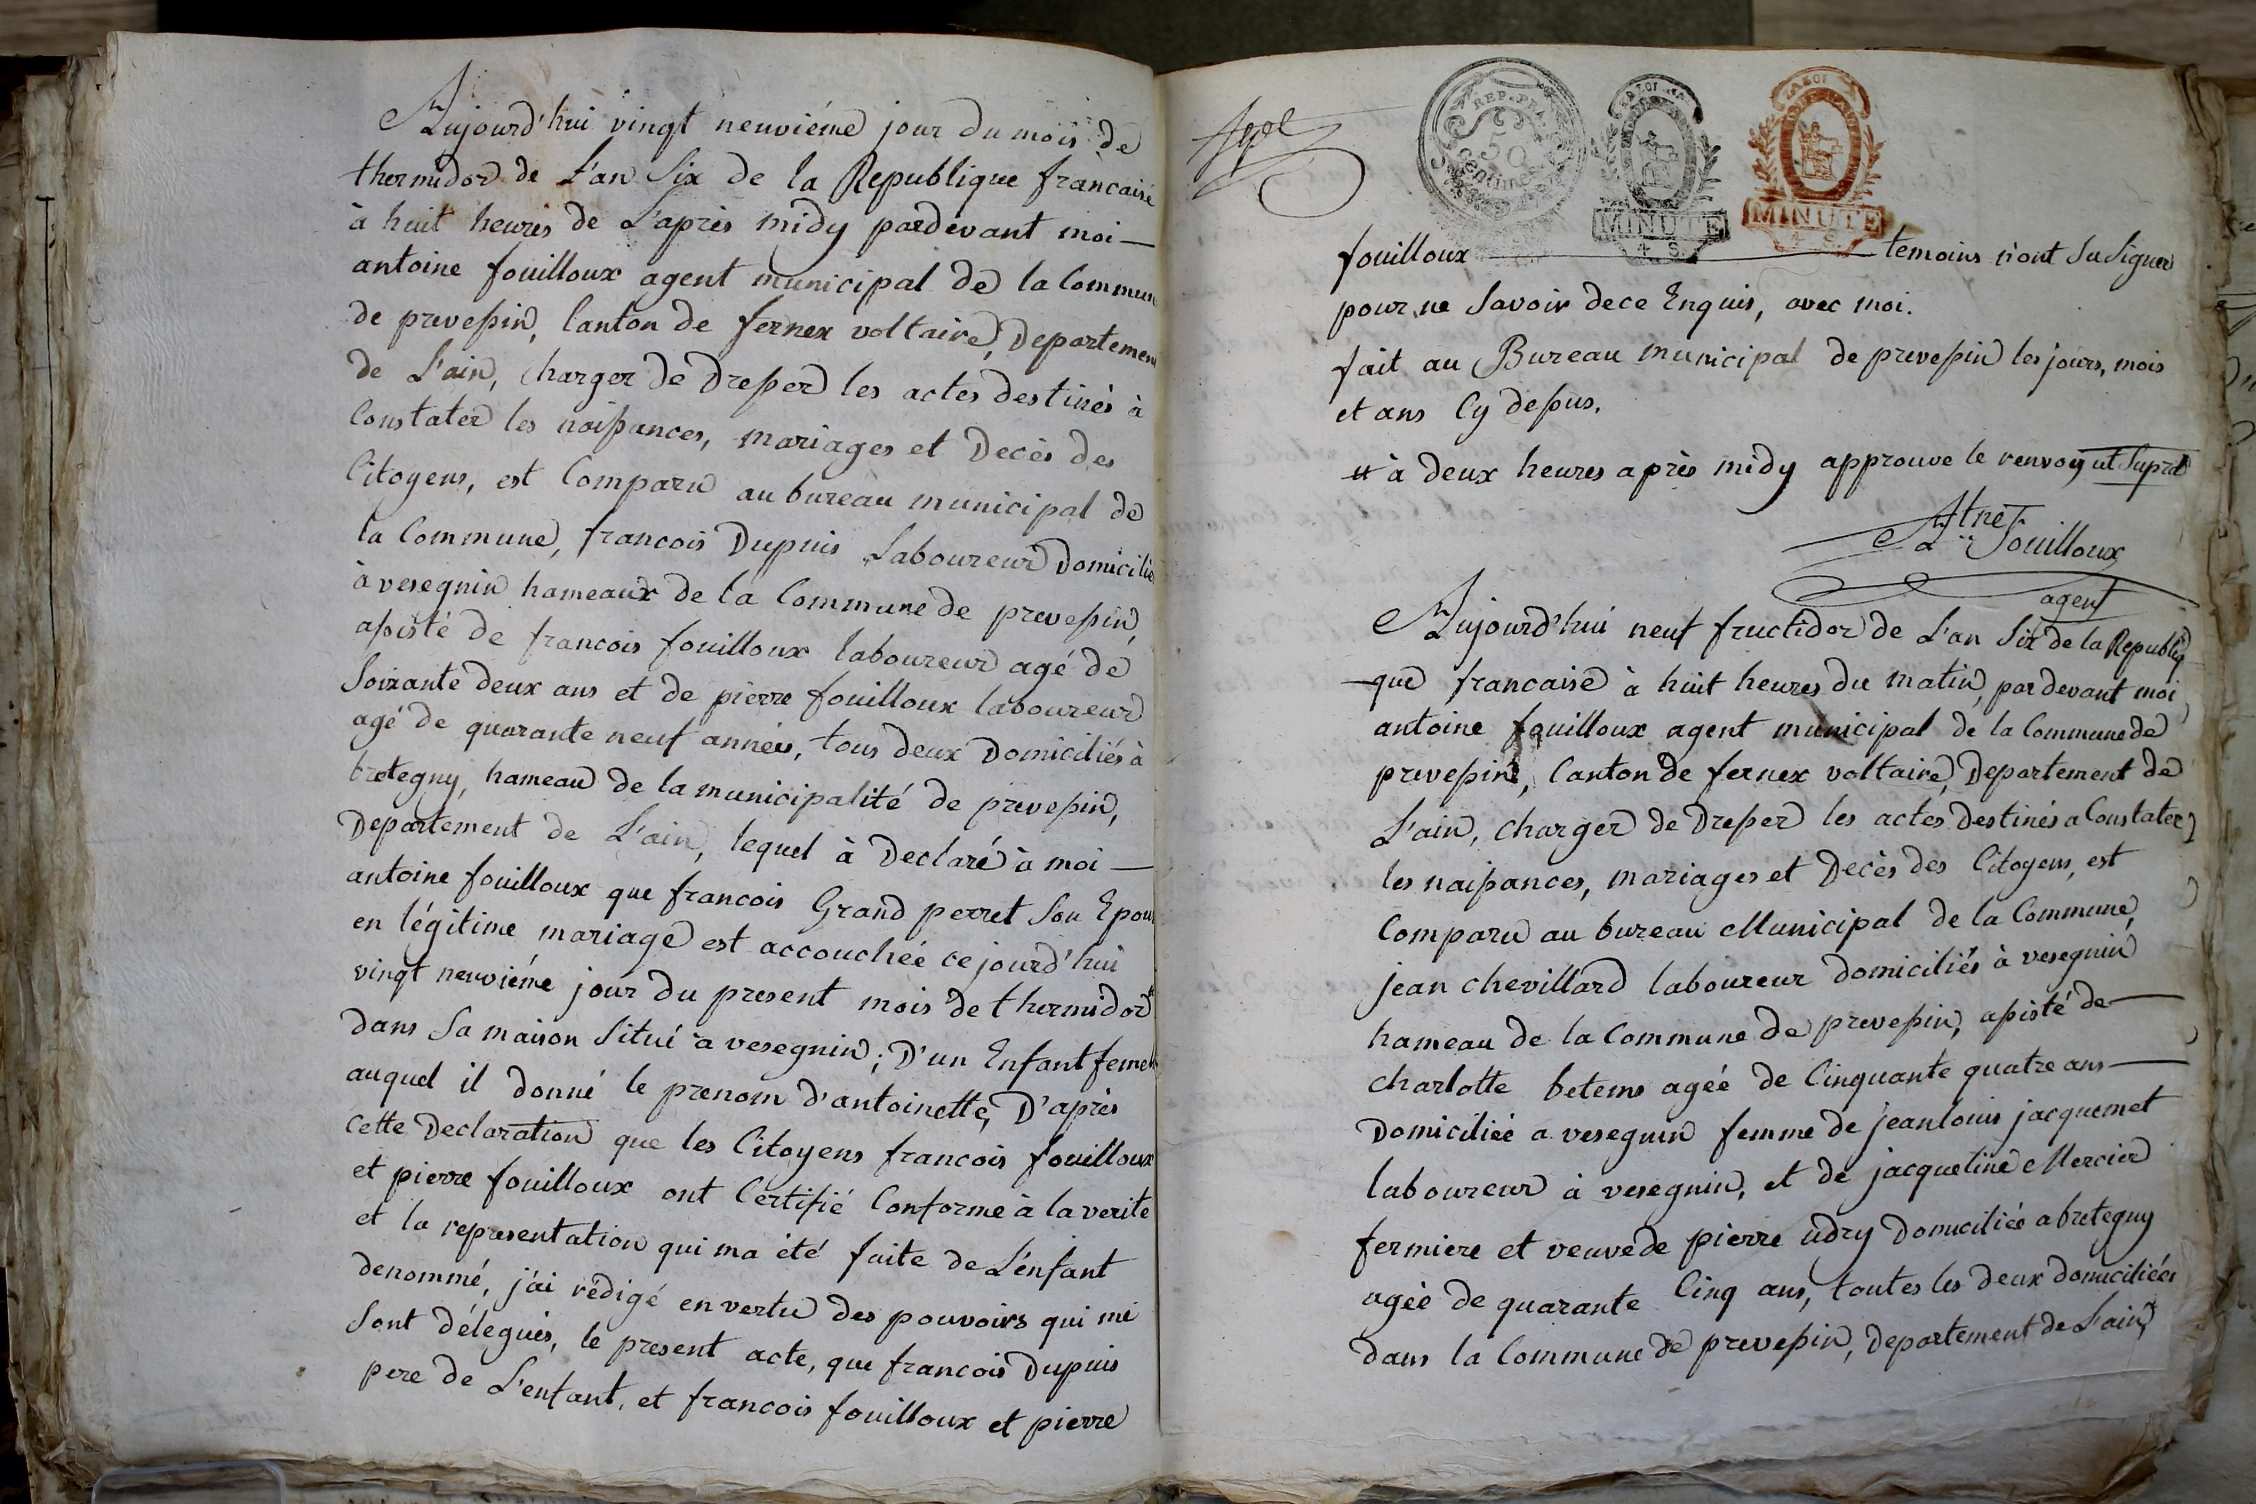 Aujourd'hui vingt neuviéme jour du mois de
thermidor de L'an Six de la Republique francaise
à huit heures de L'après midy pardevant moi —
antoine fouilloux agent municipal de la Commun
de prevessin, Canton de fernex voltaire, Departemen
de L'ain, charger de Dresser les actes destinés à
Constater les naissances, mariages et Decès des
Citoyens, est Comparu au bureau municipal de
la Commune, francois Dupuis Laboureur Domicilié
à vesegnin hameaux de la Commune de prevessin,
assisté de francois fouilloux laboureur agé de
Soixante deux ans et de pierre fouilloux laboureur
agé de quarante neuf années, tous deux Domiciliés à
bretegny, hameau de la municipalité de prevessin,
Departement de L'ain, lequel à Declaré à moi —
antoine fouilloux que francois Grand perret Son Epou
en légitime mariage est accouchée ce jourd'hui
vingt neuviéme jour du present mois de thermidor #
dans Sa maison Situé a vesegnin; D'un Enfant femel
auquel il donné le prenom d'antoinette, D'après
Cette Declaration que les Citoyens francois fouilloux
et pierre fouilloux ont Certifié Conforme à la verité
et la representation qui ma été faite de L'énfant
denommé, j'ai rédigé en vertu des pouvoirs qui me
Sont délegués, le present acte, que francois Dupuis
pere de L'enfant, et francois fouilloux et pierre
REP. FRA.
50
centimes
LA LOI
MINUTE
4 S.
LA LOI
MINUTE
4 S.
fouilloux — temoins n'ont Su Signer
pour ne Savoir de ce Enquis, avec moi.
fait au Bureau municipal de prevessin les jours, mois
et ans Cy dessus.
# à deux heures après midy approuve le renvoy ut Supra
Atne Fouilloux
agent
Aujourd'hui neuf fructidor de L'an Six de la Republiq
que francaise à huit heures du matin, par devant moi,
antoine fouilloux agent municipal de la Commune de
prevessin, Canton de fernex voltaire, Departement de
L'ain, charger de Dresser les actes destinés a Constater
les naissances, mariages et Decès des Citoyens, est
Comparu au bureau Municipal de la Commune,
jean chevillard laboureur domiciliés à vesegnin
hameau de la Commune de prevessin, assisté de —
charlotte betems agée de Cinquante quatre ans —
Domiciliée a vesegnin femme de jean louis jacquemet
laboureur à vesegnin, et de jacqueline Mercier
fermiere et veuve de pierre udry Domiciliée a bretegny
agée de quarante Cinq ans, toutes les deux domiciliées
dans la Commune de prevessin, Departement de L'ain,